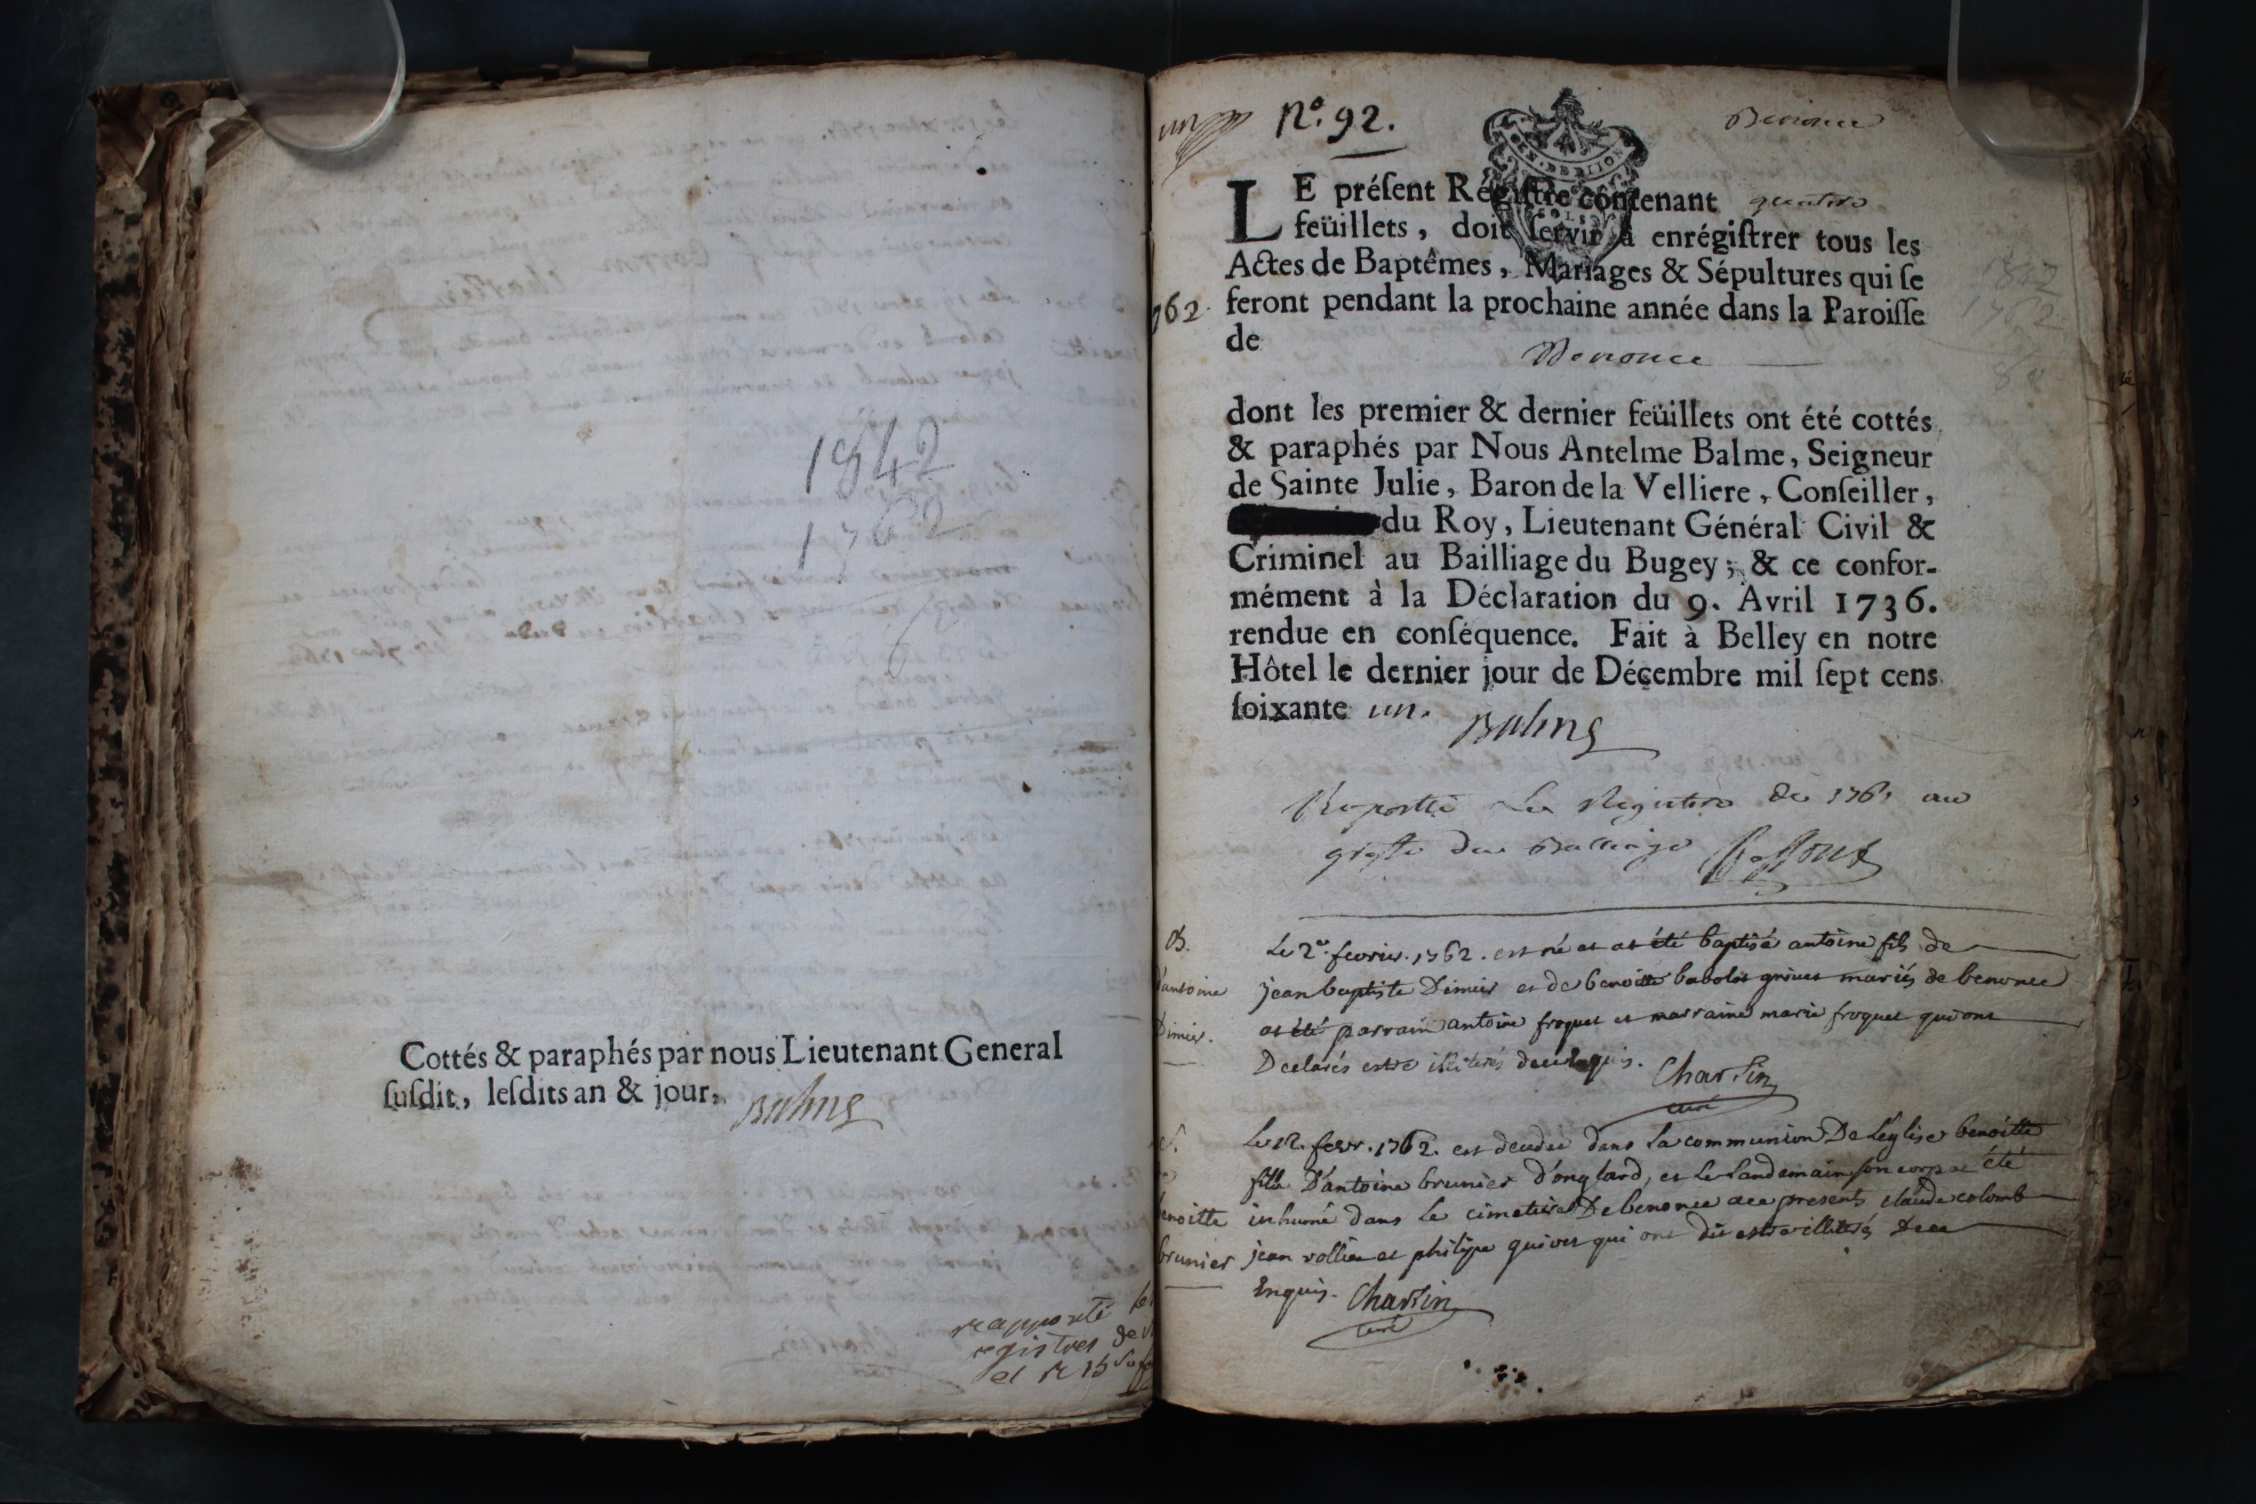 1842
1762
Cottés & paraphés par nous Lieutenant General
ſuſdit, leſdits an & jour,
Balme
reapporté
registres de
et
un
No. 92.
Benonce
LE préſent Régiſtre contenant quatre
feüillets, doit ſervir à enrégiſtrer tous les
Actes de Baptêmes, Mariages & Sépultures qui ſe
762. feront pendant la prochaine année dans la Paroiſſe
de
Benonce
dont les premier & dernier feüillets ont été cottés
& paraphés par Nous Antelme Balme, Seigneur
de Sainte Julie, Baron de la Velliere, Conſeiller,
du Roy, Lieutenant Général Civil &
Criminel au Bailliage du Bugey; & ce confor-
mément à la Déclaration du 9. Avril 1736.
rendue en conſéquence. Fait à Belley en notre
Hôtel le dernier jour de Décembre mil ſept cens
ſoixante un.
Balme
Raporté Le Registre de 1761 au
greffe du Balliage
B.
d'antoine
Dimier.
Le 2e fevrier. 1762. est né et at été baptisé antoine fils de
jean baptiste Dimier et de benoitte babolat griuet mariés de benonce
at été parrain antoine froquet et marraine marie froquet qui ont
Declarés estre illiterés dece enquis.
Charlin
curé
S.
benoitte
brunier
Le 12. fevr. 1762. est decedee dans La communion De Leglise benoitte
fille D'antoine brunier D'onglard, et Le Landemain son corp at été
inhumé dans Le cimetiere De benonce ace presents claude colomb
jean vollier et philipe quivet qui ont dit estre illiterés Dece
Enquis. Charlin
curé